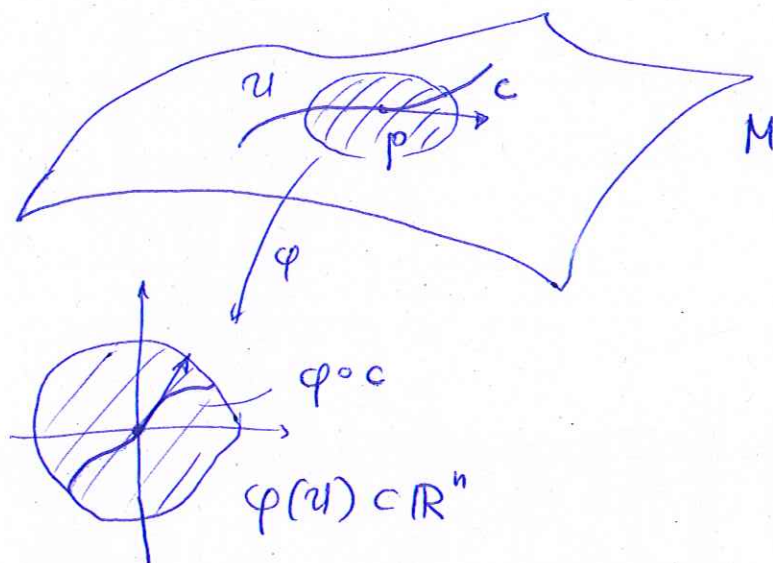 U
c
p
M
φ
φ∘c
φ(U) ⊂ ℝⁿ